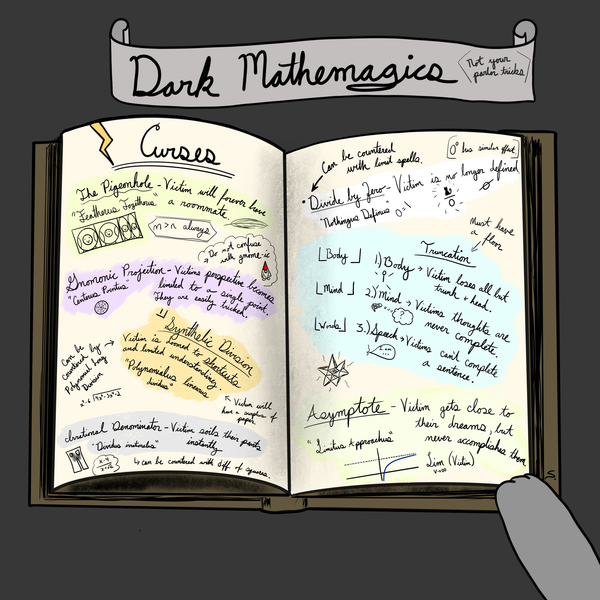 Dark Mathemagics
Not your
parlor tricks
Curses
The Pigeonhole - Victim will forever have
a roommate.
"Featherous Fogithorus"
n > n always
Do not confuse
with gnome-ic
Gnomonic Projection - Victims perspective becomes
limited to a single point.
They are easily tricked.
"Centorus Pointus"
Synthetic Division
Victim is doomed to shortcuts
and limited understanding
"Polynomialus linearus
dividus"
Can be
countered by
Polynomial long
Division
Victim will
have a surplus of
paper
Irrational Denominator - Victim soils their pants
instantly.
"Dividus inaturalus"
can be countered with diff of squares.
Can be countered
with limit spells.
0° has similar effect
Divide by Zero - Victim is no longer defined
"Nothingus Definus" 0⁻¹
Must have
a floor
Truncation
⌊Body⌋
1) Body → Victim loses all but
trunk + head.
⌊Mind⌋
2) Mind → Victims thoughts are
never complete.
⌊Words⌋
3.) Speech → Victims can't complete
a sentence.
I am
Asymptote - Victim gets close to
their dreams, but
never accomplishes them
"Limitus Approachus"
Lim (Victim)
V→∞
S.